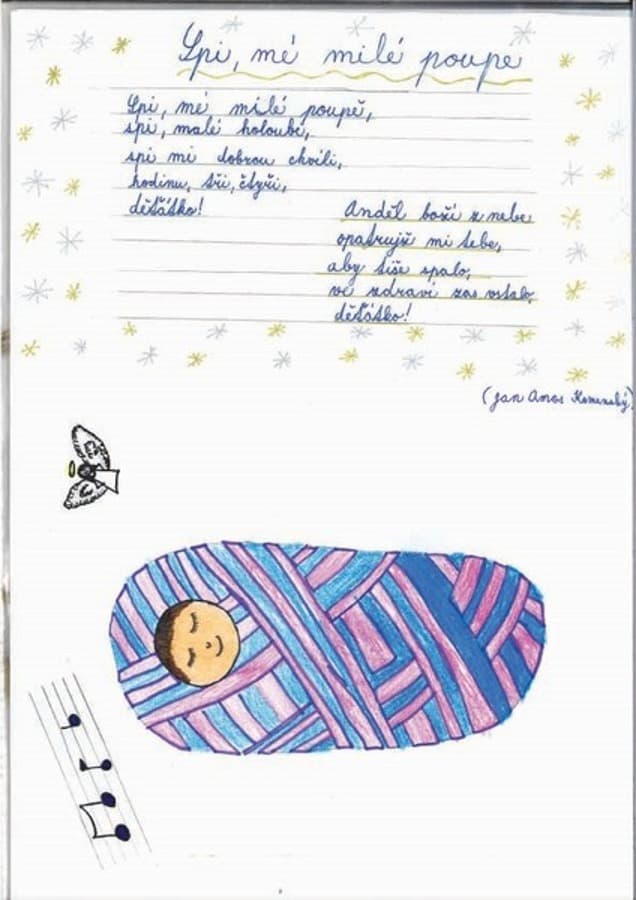 Spi, mé milé poupe
Spi, mé milé poupě,
spi, malé holoubě,
spi mi dobrou chvíli,
hodinu, tři, čtyři,
děťátko!
Anděl boží z nebe
opatrujž mi tebe,
aby tiše spalo,
ve zdraví zas vstalo,
děťátko!
(Jan Amos Komenský)